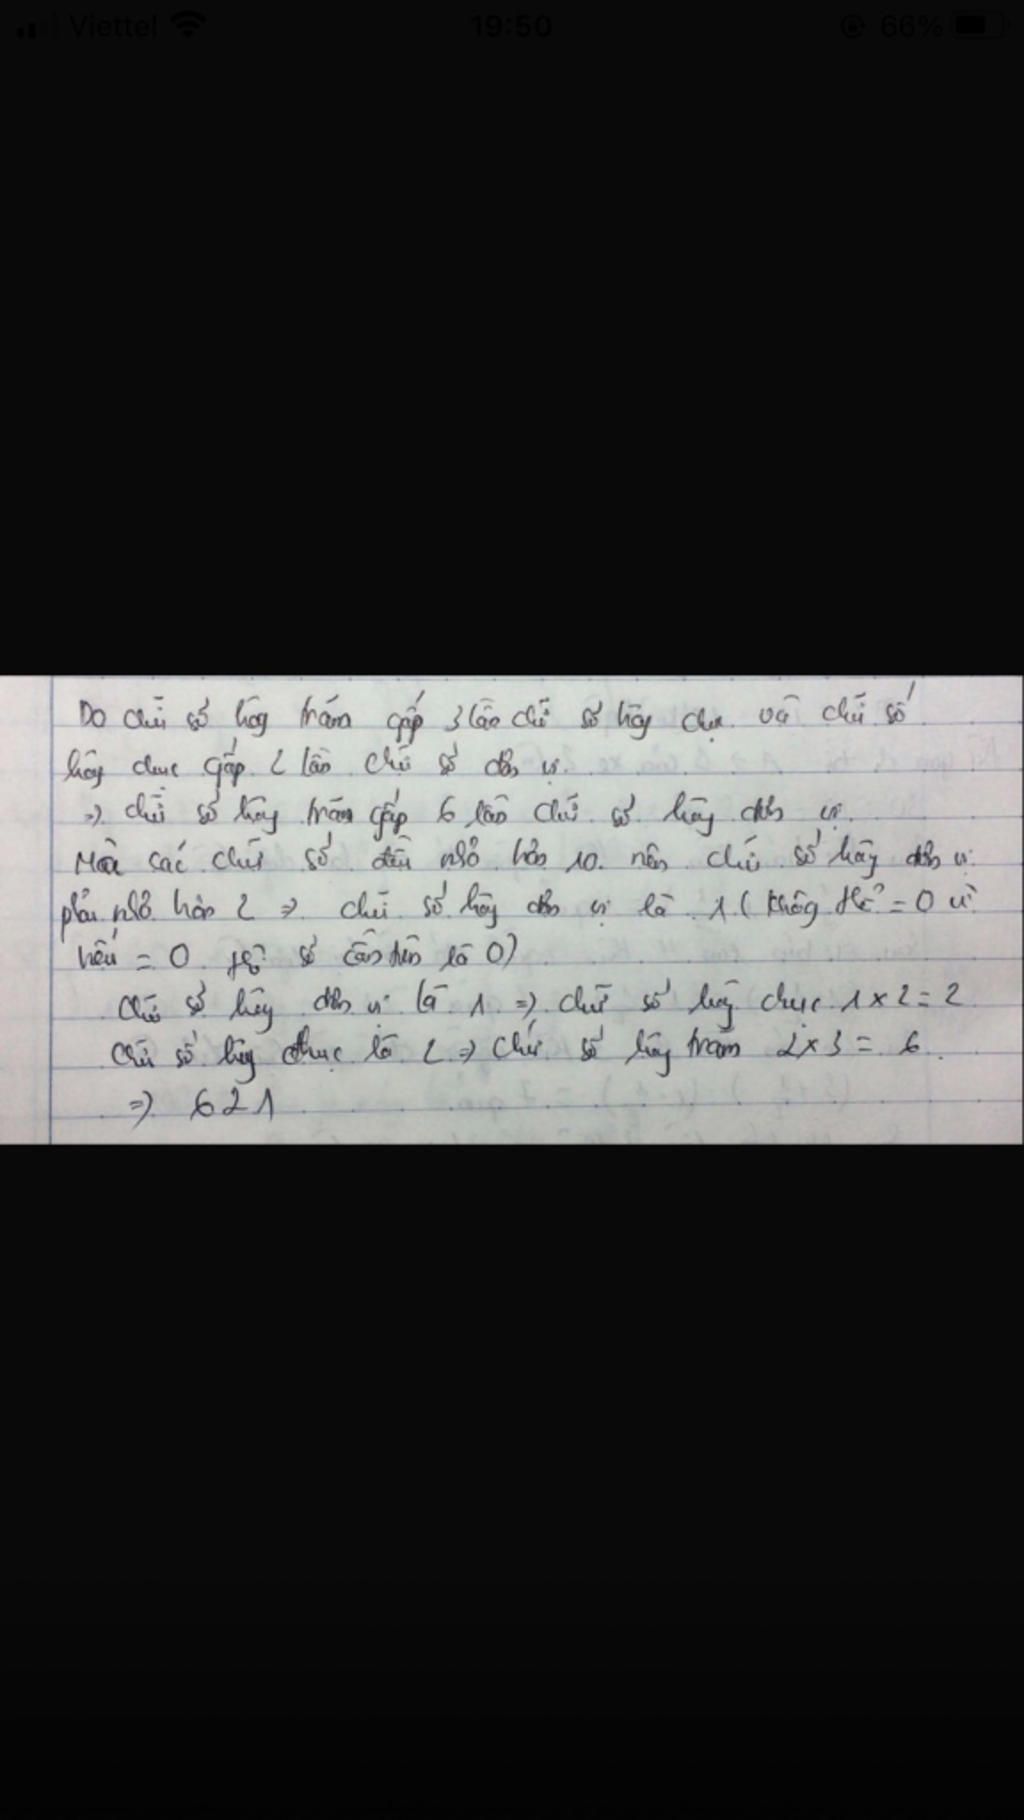 Viettel 19:50 66%
Do chữ số hàng trăm gấp 3 lần chữ số hàng chục và chữ số
hàng chục gấp 2 lần chữ số đơn vị.
=> chữ số hàng trăm gấp 6 lần chữ số hàng đơn vị.
Mà các chữ số đều nhỏ hơn 10 nên chữ số hàng đơn vị
phải nhỏ hơn 2 => chữ số hàng đơn vị là 1 ( không thể = 0 vì
nếu = 0 thì số cần tìm là 0)
Chữ số hàng đơn vị là 1 => chữ số hàng chục 1 x 2 = 2
Chữ số hàng chục là 2 => chữ số hàng trăm 2 x 3 = 6.
=> 621